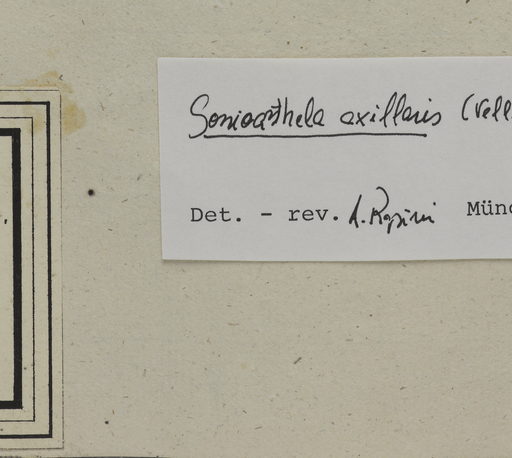 Sonizanthela axillaris (Vell
Det. - rev. A. Rapini Münc